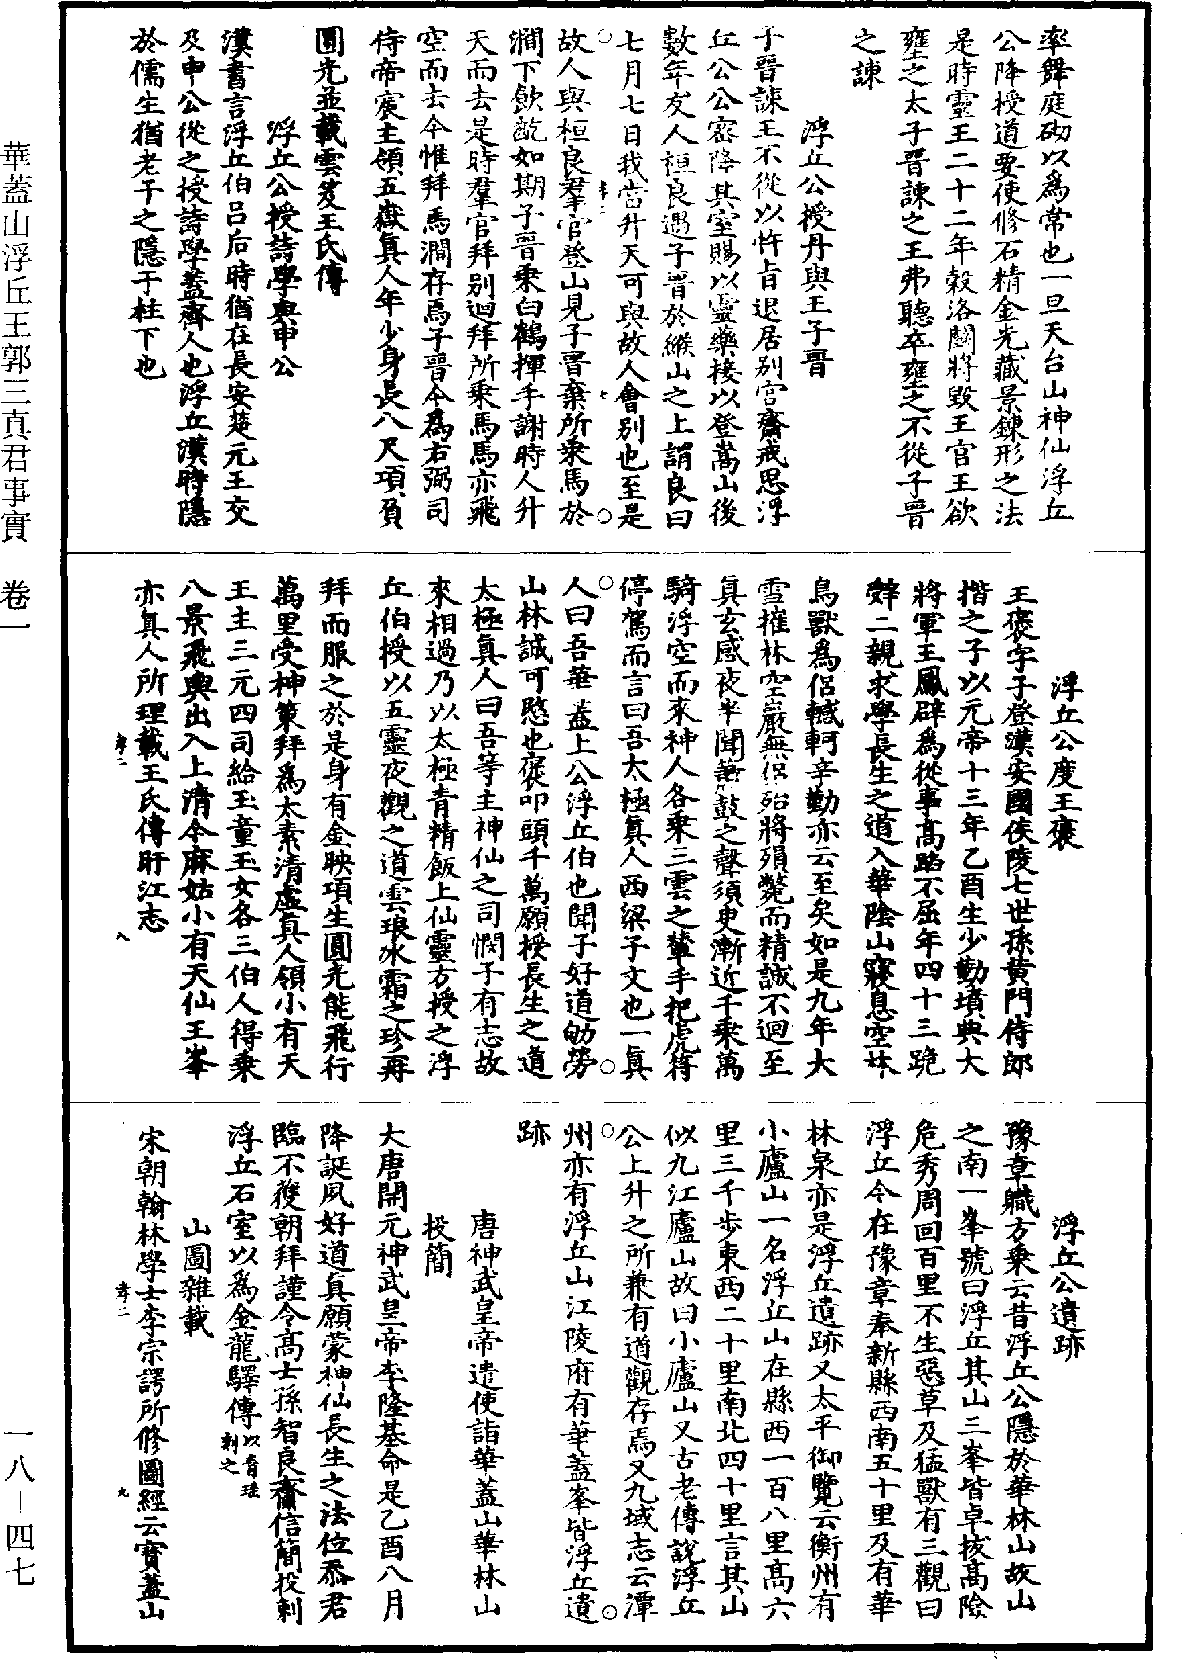 率舞庭砌以為常也一旦天台山神仙浮丘
公降授道要使修石精金光藏景鍊形之法
是時靈王二十二年穀洛鬬將毀王宮王欲
壅之太子晉諫之王弗聽卒壅之不從子晉
之諫
浮丘公授丹與王子晉
子晉諫王不從以忤旨退居別宮齋戒思浮
丘公公密降其室賜以靈藥接以登嵩山後
數年友人桓良遇子晉於緱山之上謂良曰
七月七日我當升天可與故人會別也至是
故人與桓良羣官登山見子晉棄所乘馬於
澗下飲齕如期子晉乘白鶴揮手謝時人升
天而去是時羣官拜別迴拜所乘馬馬亦飛
空而去今惟拜馬澗存焉子晉今為右弼司
侍帝宸主領五嶽真人年少身長八尺項負
圓光並載雲笈王氏傳
浮丘公授詩學與申公
漢書言浮丘伯呂后時猶在長安楚元王交
及申公從之授詩學蓋齊人也浮丘漢時隱
於儒生猶老子之隱于柱下也
浮丘公度王褒
王褒字子登漢安國侯陵七世孫黃門侍郎
楷之子以元帝十三年乙酉生少勤墳典大
將軍王鳳辟為從事高蹈不屈年四十三跪
辭二親求學長生之道入華陰山寢息空林
鳥獸為侶轗軻辛勤亦云至矣如是九年大
雪摧林空巖無侶殆將殞斃而精誠不迴至
真玄感夜半聞簫鼓之聲須臾漸近千乘萬
騎浮空而來神人各乘三雲之輦手把虎符
停駕而言曰吾太極真人西梁子文也一真
人曰吾華蓋上公浮丘伯也聞子好道劬勞
山林誠可愍也褒叩頭千萬願授長生之道
太極真人曰吾等主神仙之司憫子有志故
來相過乃以太極青精飯上仙靈方授之浮
丘伯授以五靈夜觀之道雲琅水霜之珍再
拜而服之於是身有金映項生圓光能飛行
萬里受神策拜為太素清虛真人領小有天
王主三元四司給玉童玉女各三伯人得乘
八景飛輿出入上清今麻姑小有天仙王峯
亦真人所理載王氏傳盱江志
浮丘公遺跡
豫章職方乘云昔浮丘公隱於華林山故山
之南一峯號曰浮丘其山三峯皆卓拔高險
危秀周回百里不生惡草及猛獸有三觀曰
浮丘今在豫章奉新縣西南五十里及有華
林泉亦是浮丘遺跡又太平御覽云衡州有
小廬山一名浮丘山在縣西一百八里高六
里三千步東西二十里南北四十里言其山
似九江廬山故曰小廬山又古老傳說浮丘
公上升之所兼有道觀存焉又九域志云潭
州亦有浮丘山江陵府有華蓋峯皆浮丘遺
跡
唐神武皇帝遣使詣華蓋山華林山
投簡
大唐開元神武皇帝李隆基命是乙酉八月
降誕夙好道真願蒙神仙長生之法位忝君
臨不獲朝拜謹令高士孫智良齎信簡投刺
浮丘石室以為金龍驛傳以青珪刺之
山圖雜載
宋朝翰林學士李宗諤所修圖經云寶蓋山
華蓋山浮丘王郭三真君事實 卷一
一八—四七